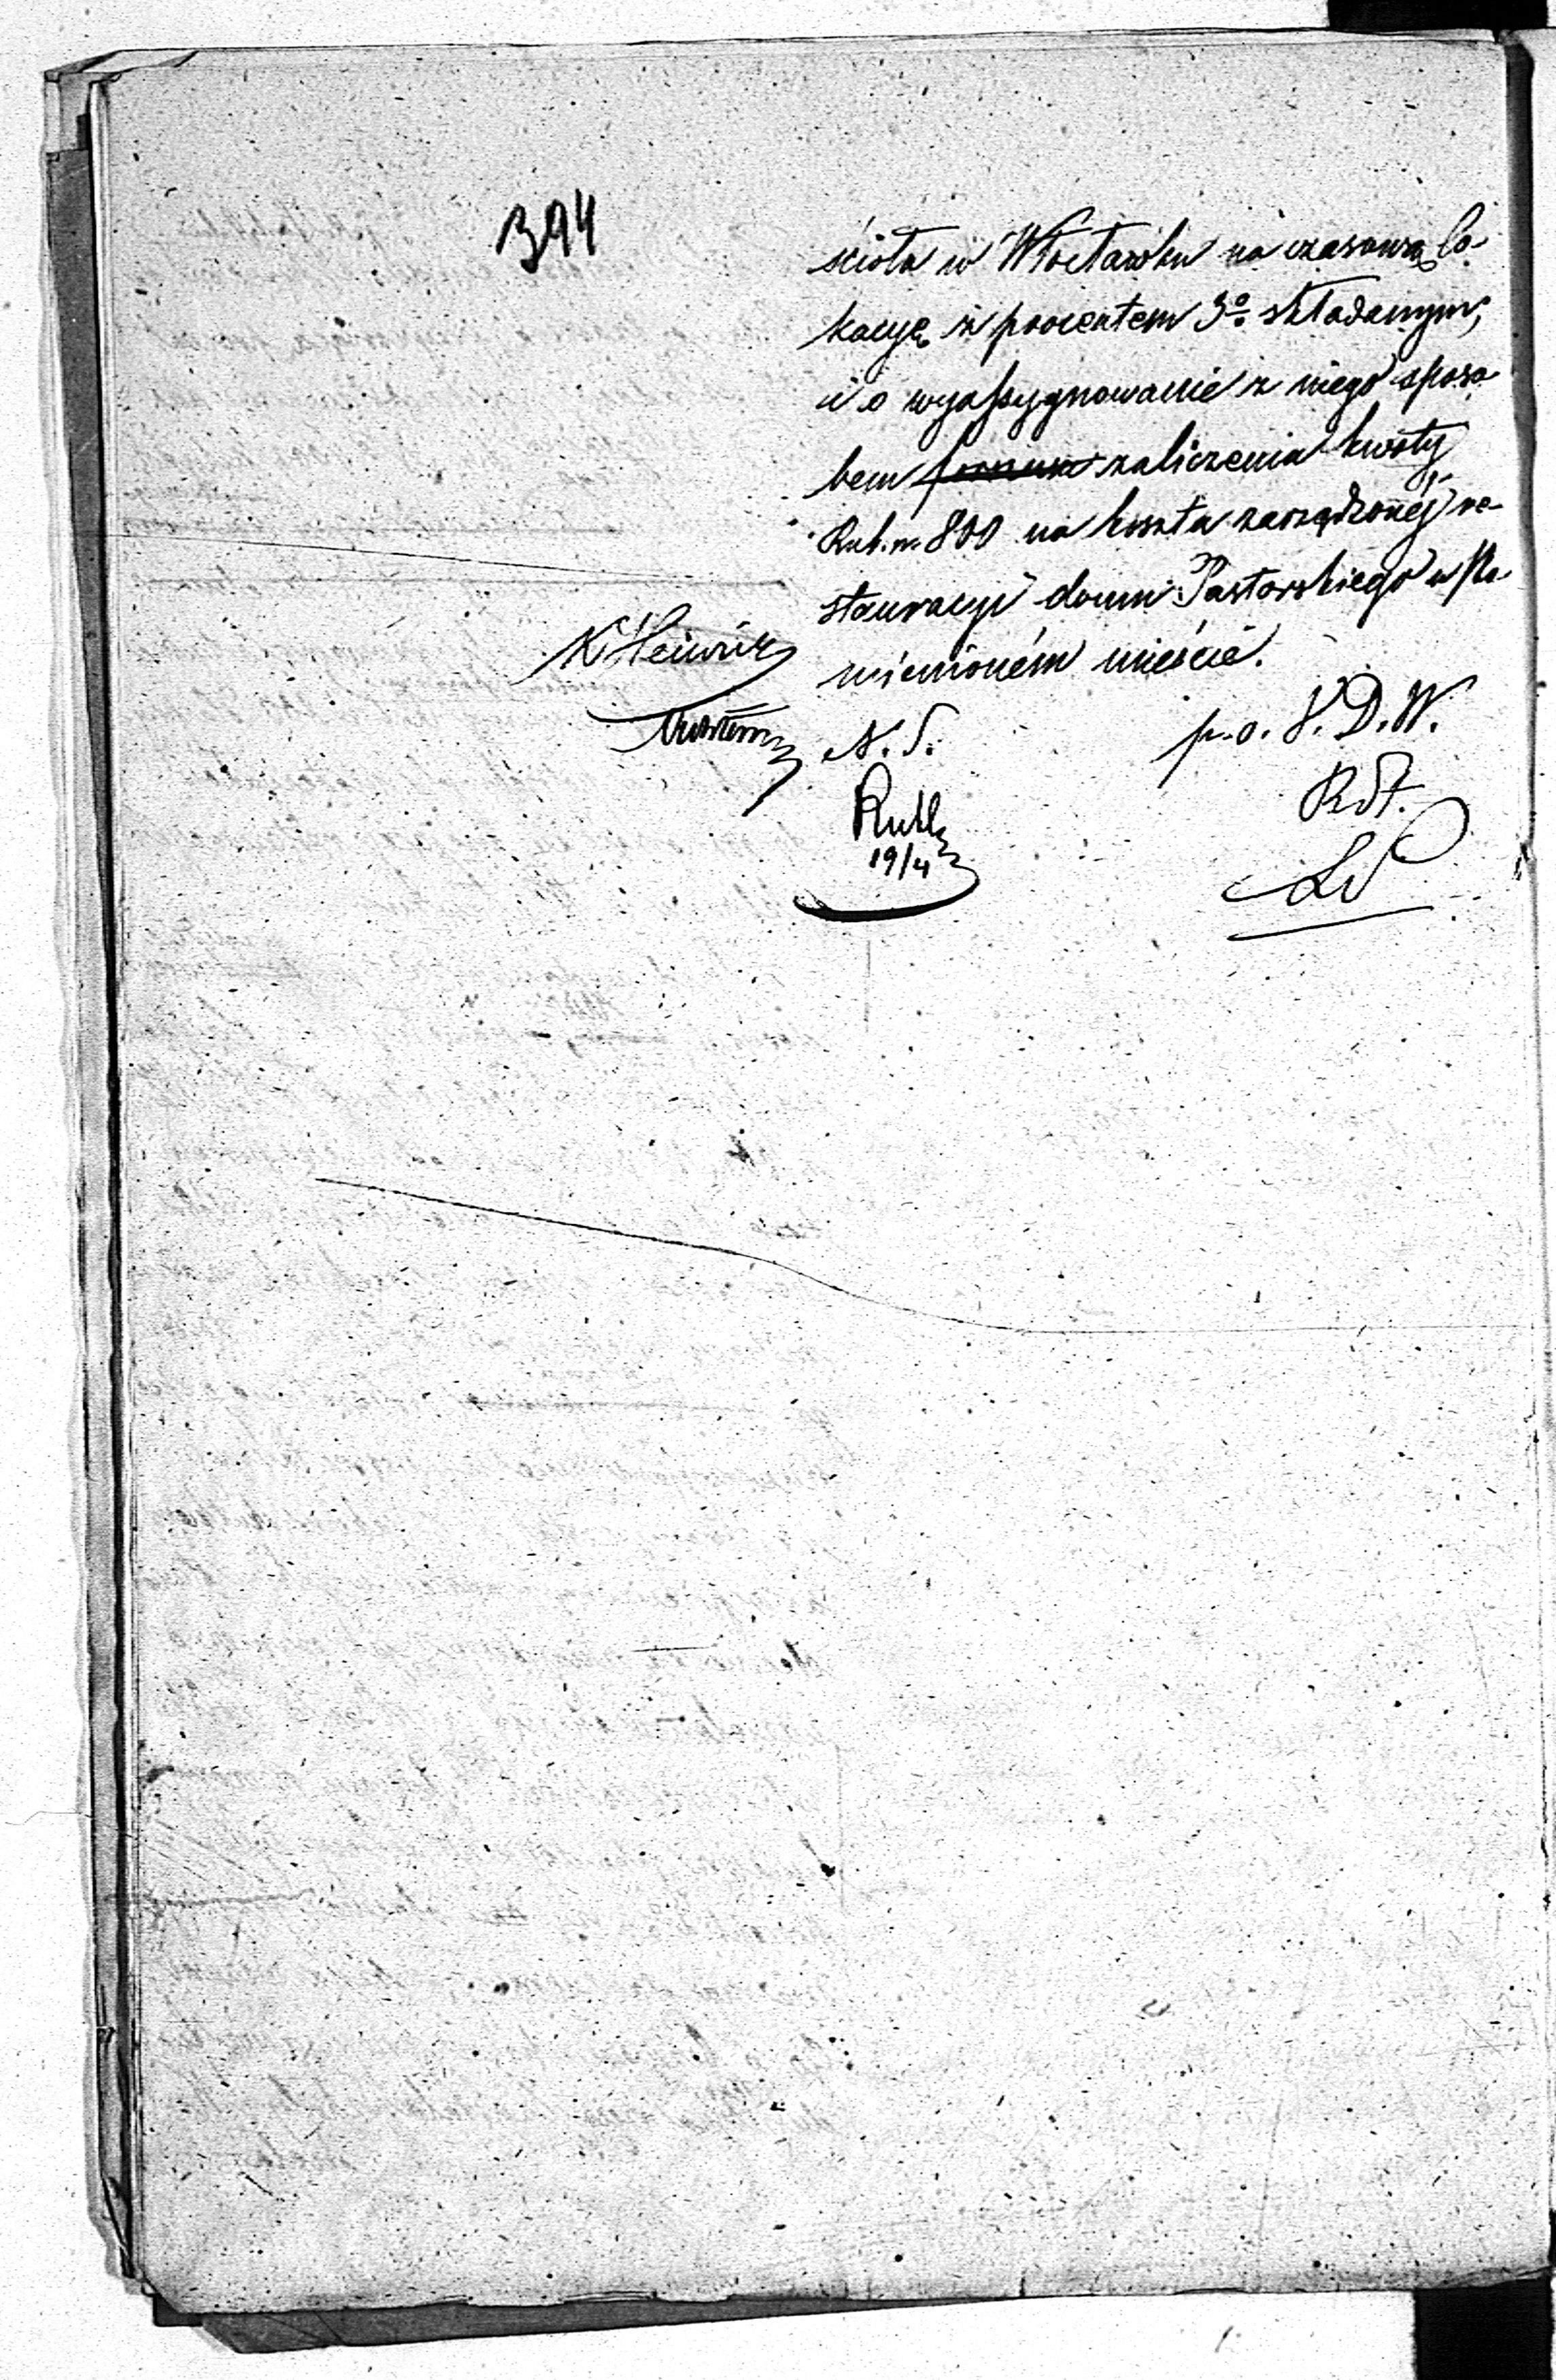 394
ścioła w Włocławku na czasową lo-
kacyę z procentem 3% składanym,
i o wyassygnowanie z niego sposo
bem zaliczenia kwoty
Rub. sr. 800 na koszta zarządzonéj re-
stauracyi domu Pastorskiego w
mienioném mieście.
N. S.
p. o. D. W.
19/4